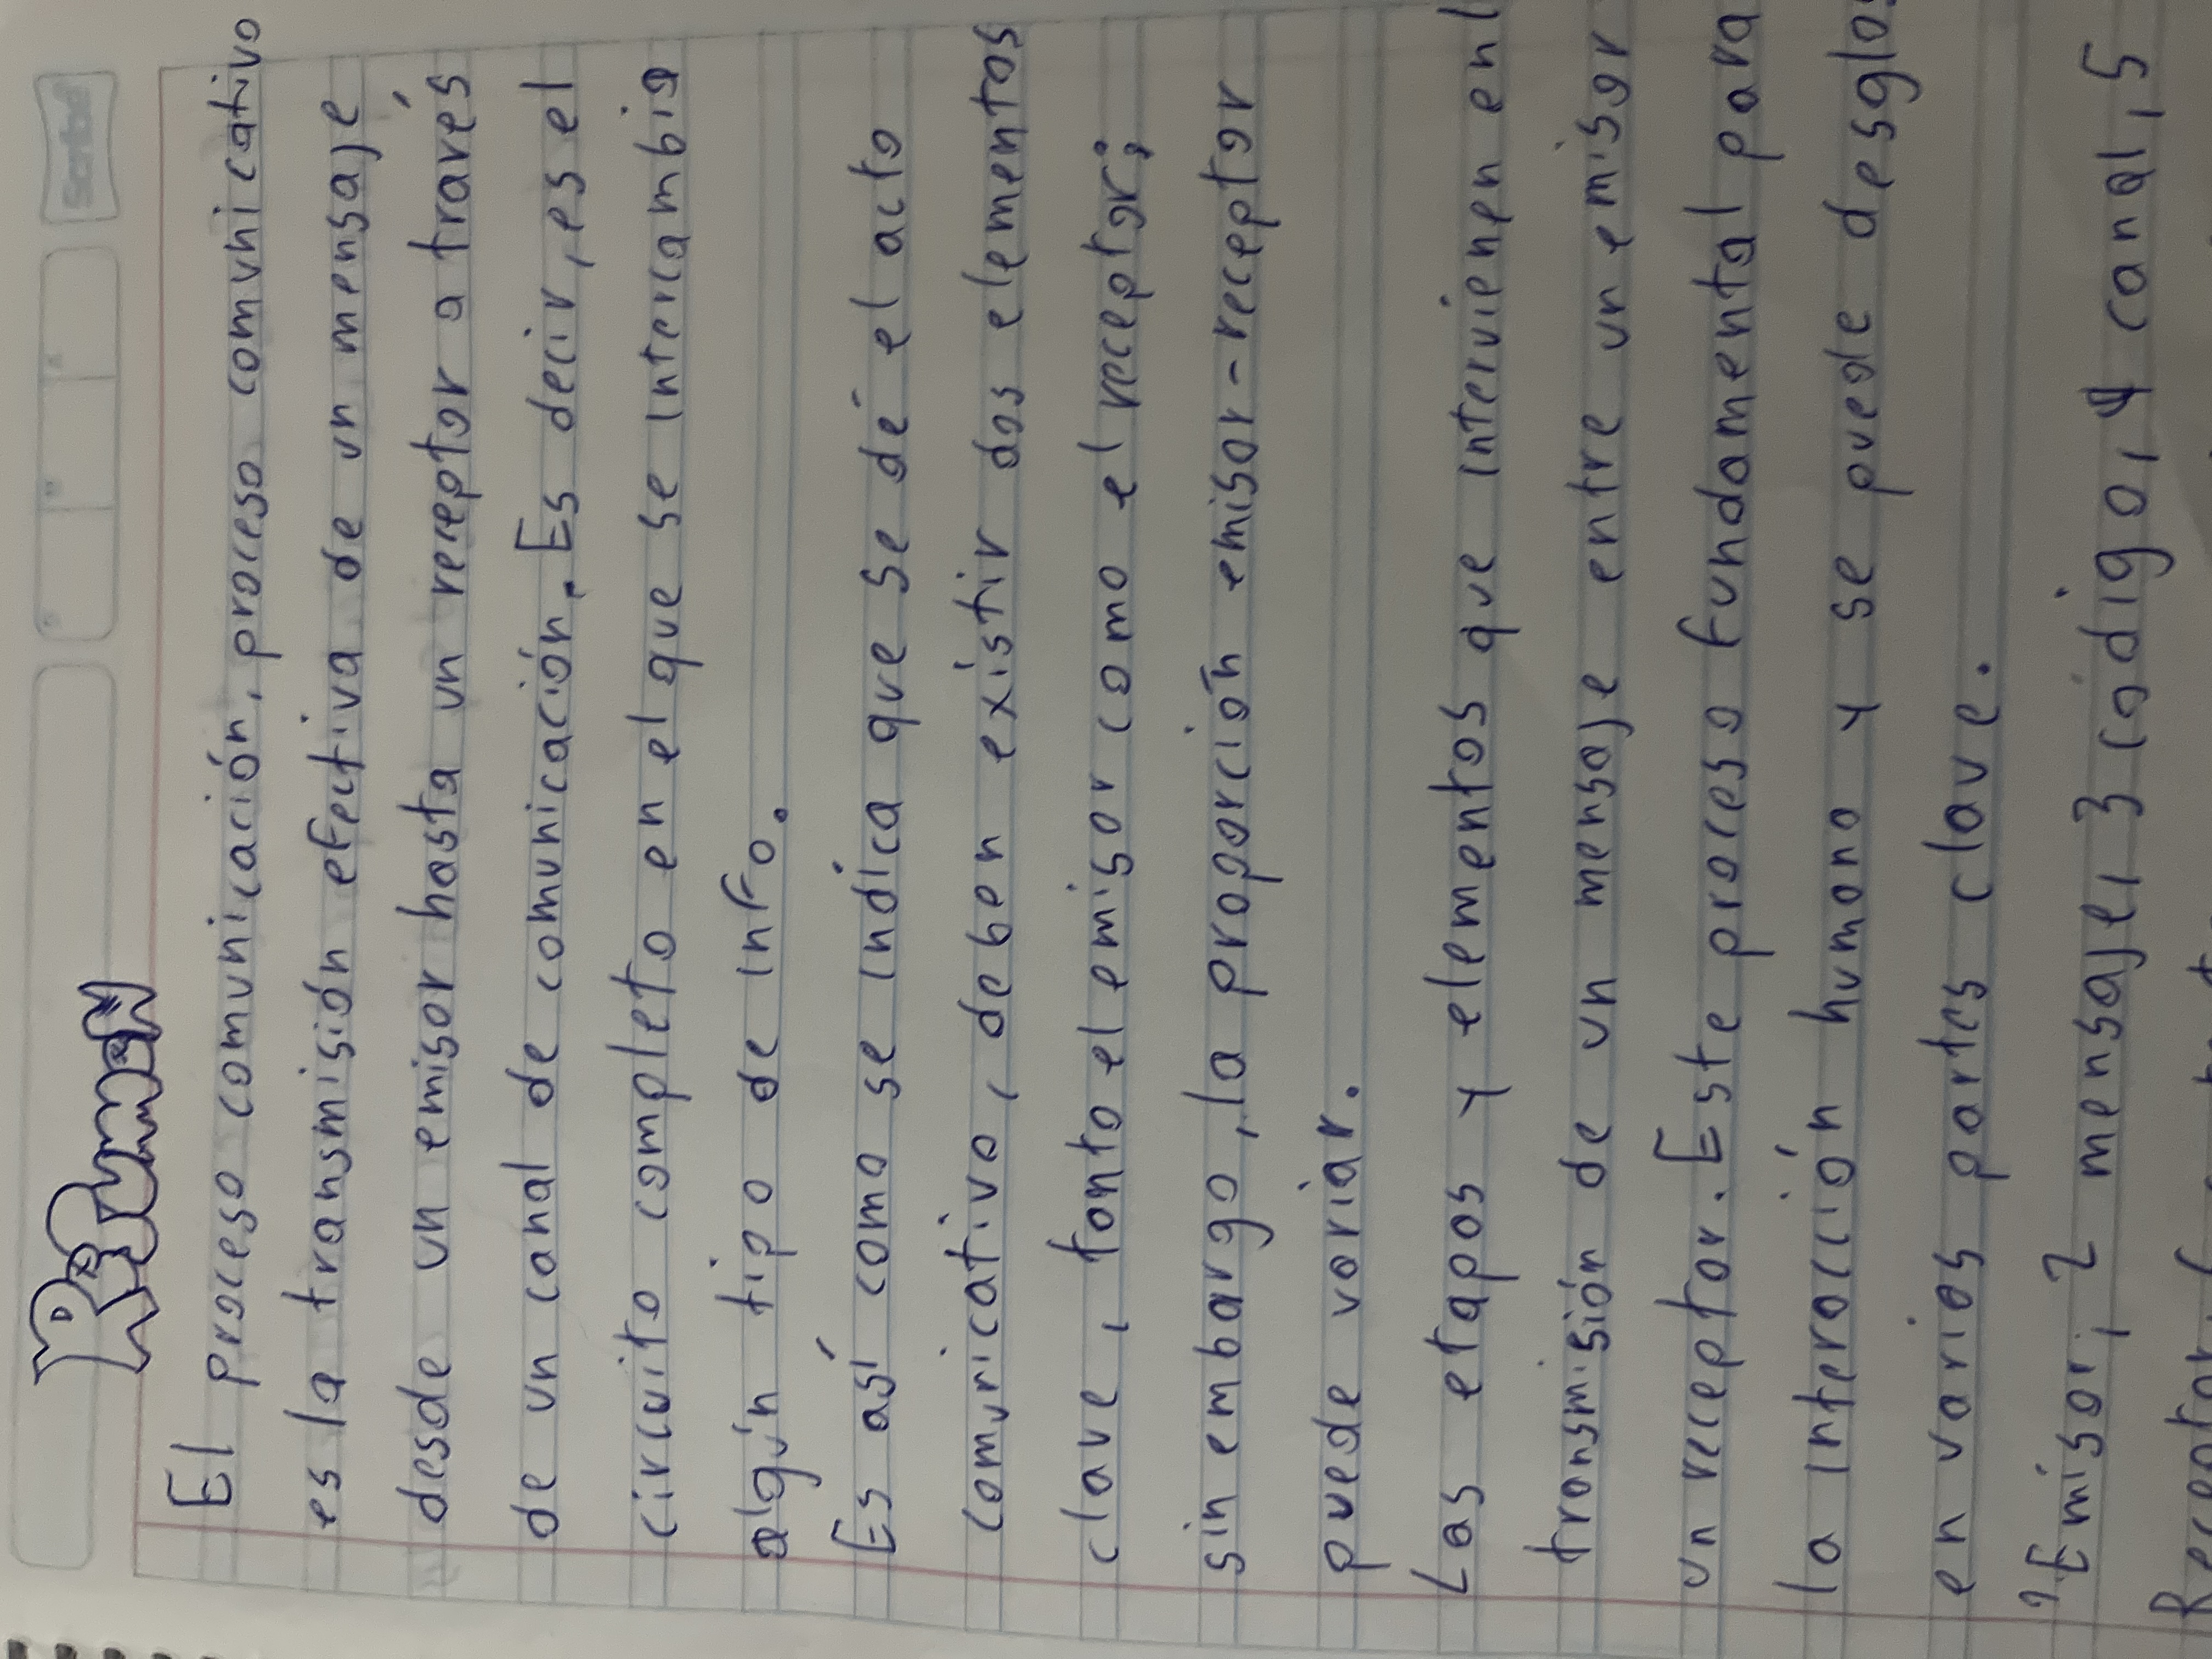 Scribe
El proceso comunicación, proceso comunicativo
es la transmisión efectiva de un mensaje
desde un emisor hasta un receptor a través
de un canal de comunicación. Es decir, es el
circuito completo en el que se intercambia
algún tipo de info.
Es así como se indica que se dé el acto
comunicativo, deben existir dos elementos
clave, tanto el emisor como el receptor;
sin embargo, la proporción emisor-receptor
puede variar.
Las etapas y elementos que intervienen en l
transmisión de un mensaje entre un emisor
un receptor. Este proceso fundamental para
la interacción humana y se puede desglos
en varias partes clave.
1 Emisor, 2 mensaje, 3 código, 4 canal, 5
Receptor,